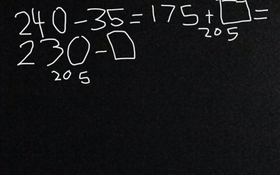 240-35=175+□=
205
230-□
205